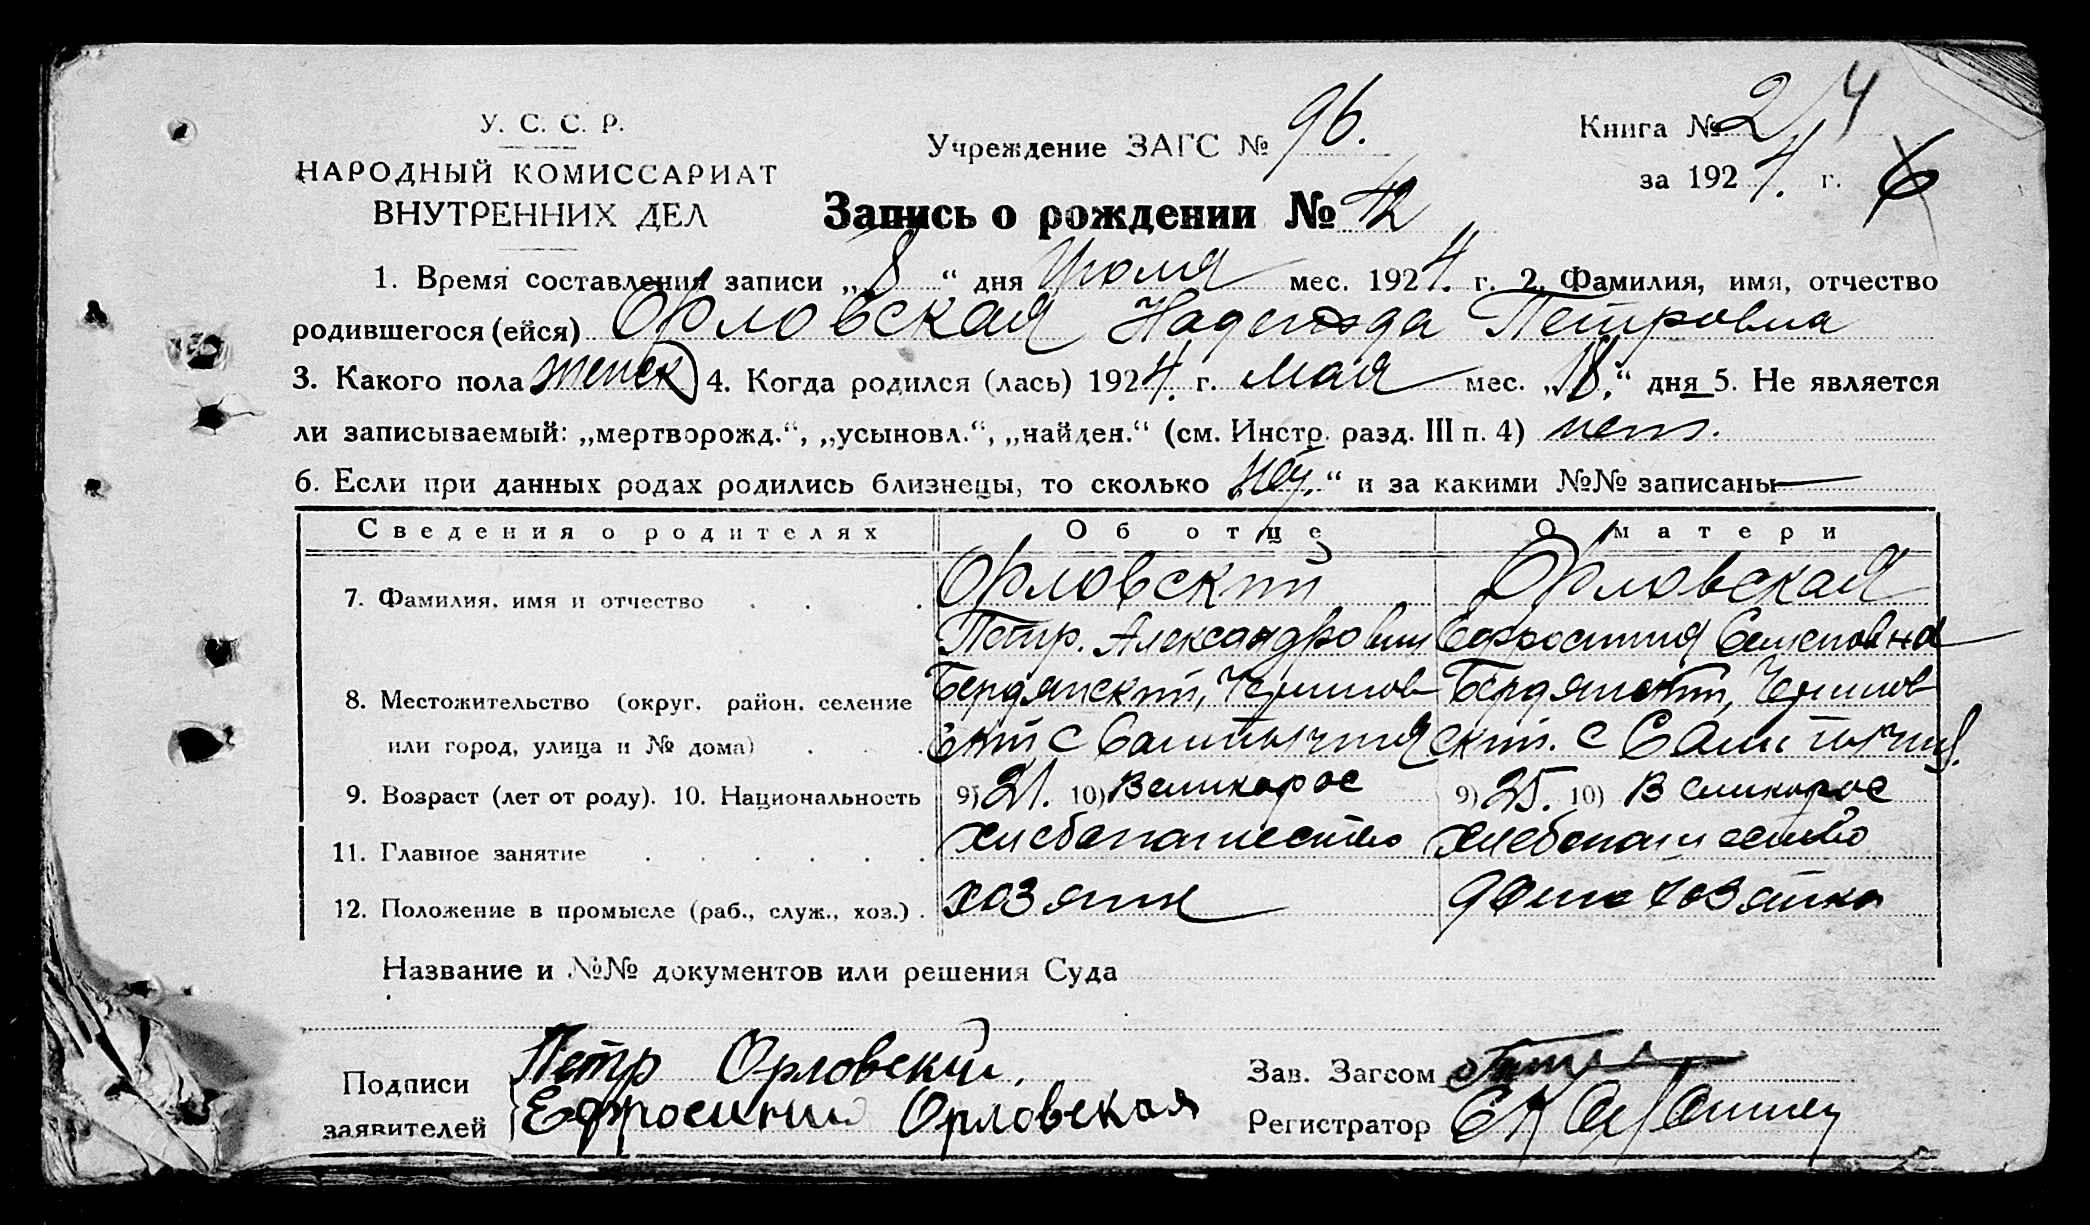 У. С. С. Р.
НАРОДНЫЙ КОМИССАРИАТ
ВНУТРЕННИХ ДЕЛ
Учреждение ЗАГС № 96.
Книга № 2
за 1924. г. 6
Запись о рождении № 12
1. Время составления записи „8“ дня Июля мес. 1924. г. 2. Фамилия, имя, отчество
родившегося (ейся) Орловская Надежда Петровна
3. Какого пола женск 4. Когда родился (лась) 1924. г. мая мес. „18.“ дня 5. Не является
ли записываемый: „мертворожд.“, „усыновл.“, „найден.“ (см. Инстр. разд. III п. 4) нет.
6. Если при данных родах родились близнецы, то сколько „“ и за какими №№ записаны —
Сведения о родителях Об отце О матери
7. Фамилия, имя и отчество Орловский Орловская
Петр. Александрович Ефросиния Семеновна
8. Местожительство (округ. район. селение Бердянский, Чернигов Бердянский, Чернигов
или город, улица и № дома) ский с Салтычия ский. с Салтычия.
9. Возраст (лет от роду). 10. Национальность 9) 21. 10) Великорос 9) 25. 10) Великорос
11. Главное занятие хлебопашество хлебопашество
12. Положение в промысле (раб., служ., хоз.) хозяин дома хозяйка
Название и №№ документов или решения Суда
Подписи
заявителей
Петр Орловский.
Ефросиния Орловская
Зав. Загсом
Регистратор